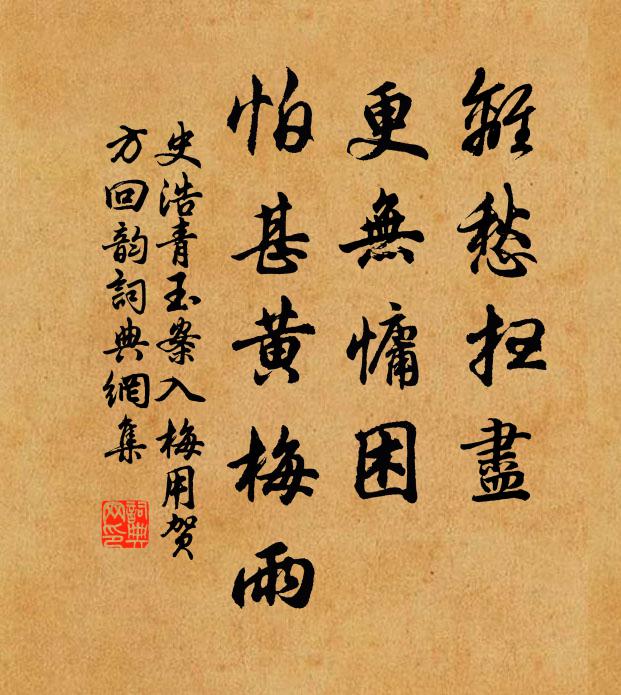 離愁扫盡
更無慵困
怕甚黄梅雨
史浩青玉案入梅用贺
方回韵詞典網集
詞典
网印